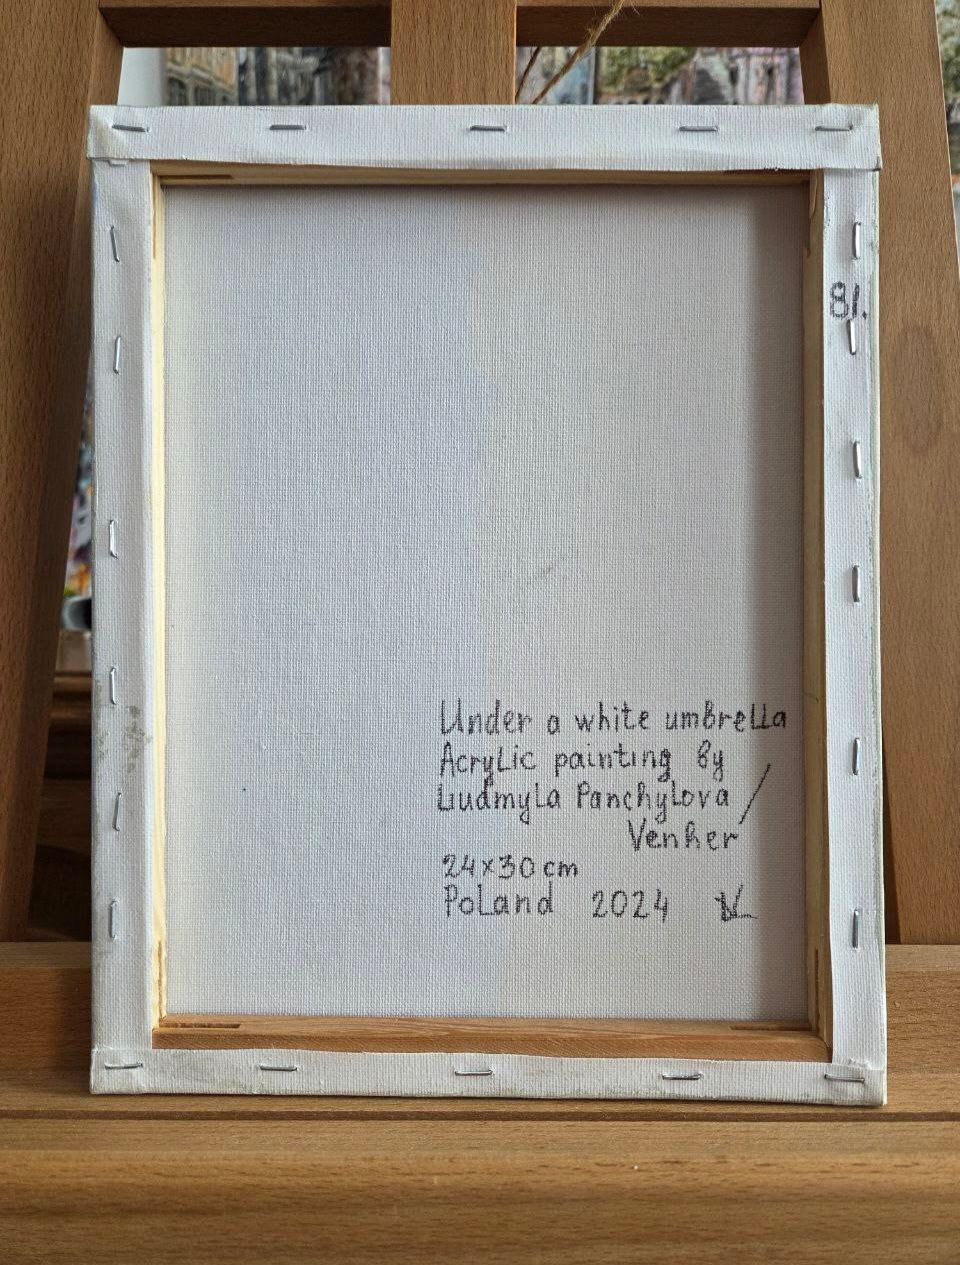 81.
Under a white umbrella
Acrylic painting by
Liudmyla Panchylova /
Venher
24x30 cm
Poland 2024 VL